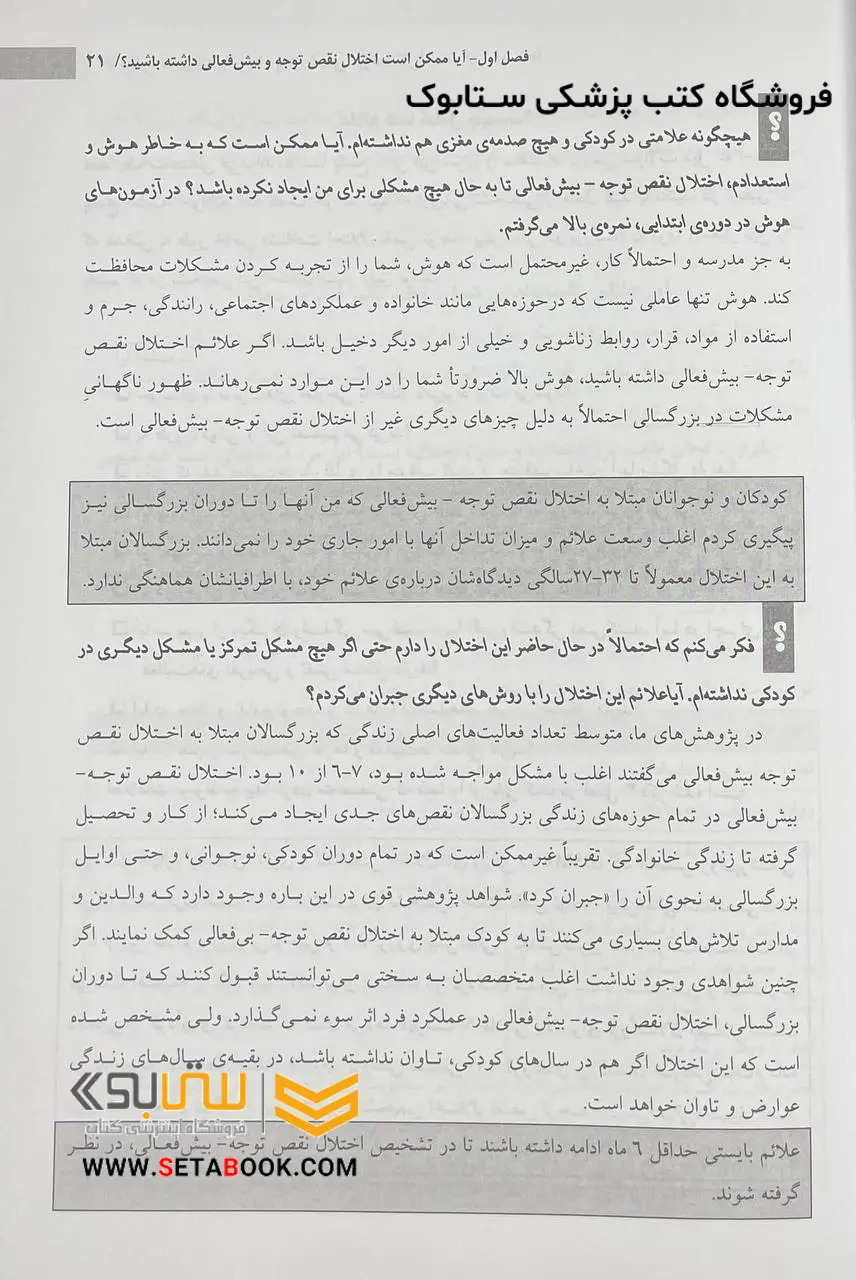 فصل اول- آیا ممکن است اختلال نقص توجه و بیش‌فعالی داشته باشید؟/ ۲۱
فروشگاه کتب پزشکی ستابوک
؟ هیچگونه علامتی در کودکی و هیچ صدمه‌ی مغزی هم نداشته‌ام. آیا ممکن است که به خاطر هوش و
استعدادم، اختلال نقص توجه – بیش‌فعالی تا به حال هیچ مشکلی برای من ایجاد نکرده باشد؟ در آزمون‌های
هوش در دوره‌ی ابتدایی، نمره‌ی بالا می‌گرفتم.
به جز مدرسه و احتمالاً کار، غیرمحتمل است که هوش، شما را از تجربه کردن مشکلات محافظت
کند. هوش تنها عاملی نیست که درحوزه‌هایی مانند خانواده و عملکردهای اجتماعی، رانندگی، جرم و
استفاده از مواد، قرار، روابط زناشویی و خیلی از امور دیگر دخیل باشد. اگر علائم اختلال نقص
توجه- بیش‌فعالی داشته باشید، هوش بالا ضرورتاً شما را در این موارد نمی‌رهاند. ظهور ناگهانیِ
مشکلات در بزرگسالی احتمالاً به دلیل چیزهای دیگری غیر از اختلال نقص توجه- بیش‌فعالی است.
کودکان و نوجوانان مبتلا به اختلال نقص توجه – بیش‌فعالی که من آنها را تا دوران بزرگسالی نیز
پیگیری کردم اغلب وسعت علائم و میزان تداخل آنها با امور جاری خود را نمی‌دانند. بزرگسالان مبتلا
به این اختلال معمولاً تا ۳۲-۲۷سالگی دیدگاه‌شان درباره‌ی علائم خود، با اطرافیانشان هماهنگی ندارد.
؟ فکر می‌کنم که احتمالاً در حال حاضر این اختلال را دارم حتی اگر هیچ مشکل تمرکز یا مشکل دیگری در
کودکی نداشته‌ام. آیاعلائم این اختلال را با روش‌های دیگری جبران می‌کردم؟
در پژوهش‌های ما، متوسط تعداد فعالیت‌های اصلی زندگی که بزرگسالان مبتلا به اختلال نقص
توجه بیش‌فعالی می‌گفتند اغلب با مشکل مواجه شده بود، ۷-۶ از ۱۰ بود. اختلال نقص توجه-
بیش‌فعالی در تمام حوزه‌های زندگی بزرگسالان نقص‌های جدی ایجاد می‌کند؛ از کار و تحصیل
گرفته تا زندگی خانوادگی. تقریباً غیرممکن است که در تمام دوران کودکی، نوجوانی، و حتی اوایل
بزرگسالی به نحوی آن را «جبران کرد». شواهد پژوهشی قوی در این باره وجود دارد که والدین و
مدارس تلاش‌های بسیاری می‌کنند تا به کودک مبتلا به اختلال نقص توجه- بی‌فعالی کمک نمایند. اگر
چنین شواهدی وجود نداشت اغلب متخصصان به سختی می‌توانستند قبول کنند که تا دوران
بزرگسالی، اختلال نقص توجه- بیش‌فعالی در عملکرد فرد اثر سوء نمی‌گذارد. ولی مشخص شده
است که این اختلال اگر هم در سال‌های کودکی، تاوان نداشته باشد، در بقیه‌ی سال‌های زندگی
عوارض و تاوان خواهد است.
ستابوک
فروشگاه اینترنتی کتاب
علائم بایستی حداقل ۶ ماه ادامه داشته باشند تا در تشخیص اختلال نقص توجه- بیش‌فعالی، در نظر
گرفته شوند.
WWW.SETABOOK.COM